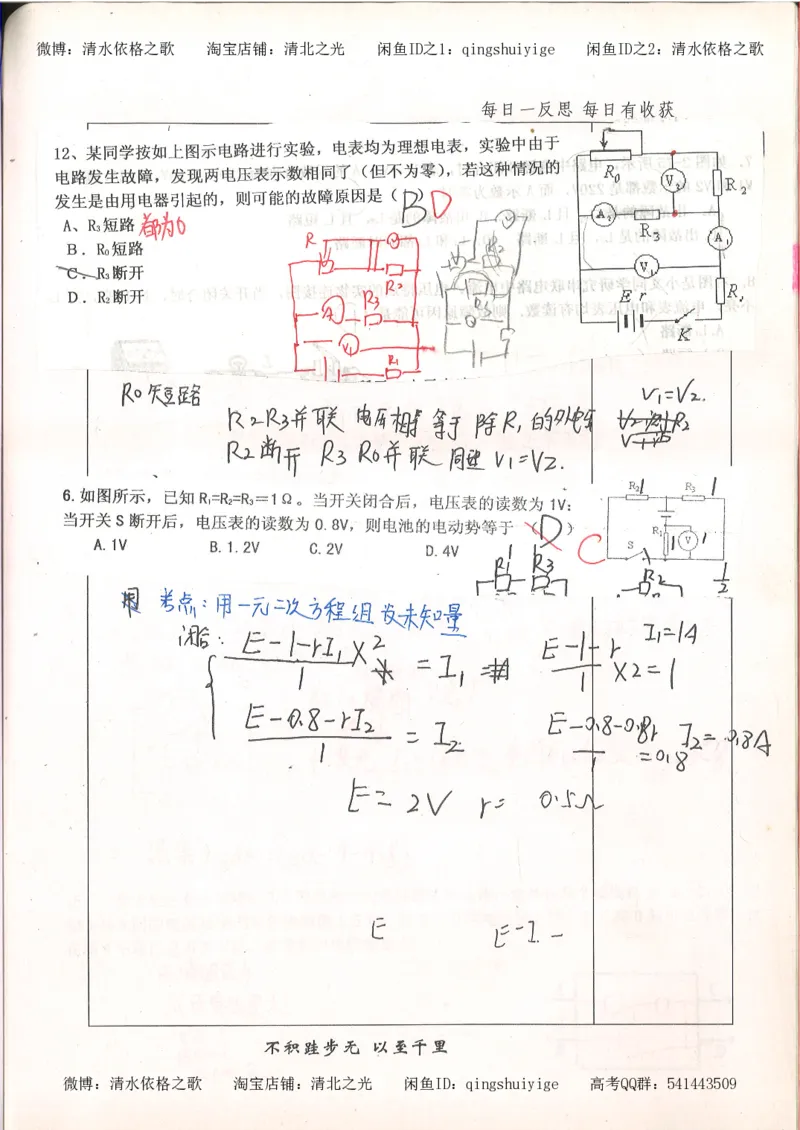 微博：清水依格之歌 淘宝店铺：清北之光 闲鱼ID之1：qingshuiyige 闲鱼ID之2：清水依格之歌
每日一反思 每日有收获
12、某同学按如上图示电路进行实验，电表均为理想电表，实验中由于
电路发生故障，发现两电压表示数相同了（但不为零），若这种情况的
发生是由用电器引起的，则可能的故障原因是（ B D
A、R₃短路 都为0
B．R₀短路
C．R₃断开
D．R₂断开
R₀
V₂
R₂
A₂
R₃
A₁
V₁
E r
R₁
K
R
R₂
R₃
A
V₁
R₁
R0短路
R2R3并联 电压相等等于除R1的外电压
R2断开 R3 R0并联 同理 V1=V2.
V1=V2.
6.如图所示，已知R₁=R₂=R₃＝1Ω。当开关闭合后，电压表的读数为1V；
当开关S断开后，电压表的读数为0.8V，则电池的电动势等于（D）
C
A.1V B.1.2V C.2V D.4V
R₂ 1 R₃ 1
R₁ 1 V 1
S
R1 R3
R2
1/2
考点：用一元二次方程组设未知量
闭合：
(E-1-rI₁)/1 ×2 = I₁
(E-1-r)/1 ×2=1
I₁=1A
(E-0.8-rI₂)/1 = I₂
(E-0.8-0.8r)/1 =0.8
I₂=0.8A
E=2V r= 0.5Ω
E
E-I-
不积跬步无 以至千里
微博：清水依格之歌 淘宝店铺：清北之光 闲鱼ID：qingshuiyige 高考QQ群：541443509